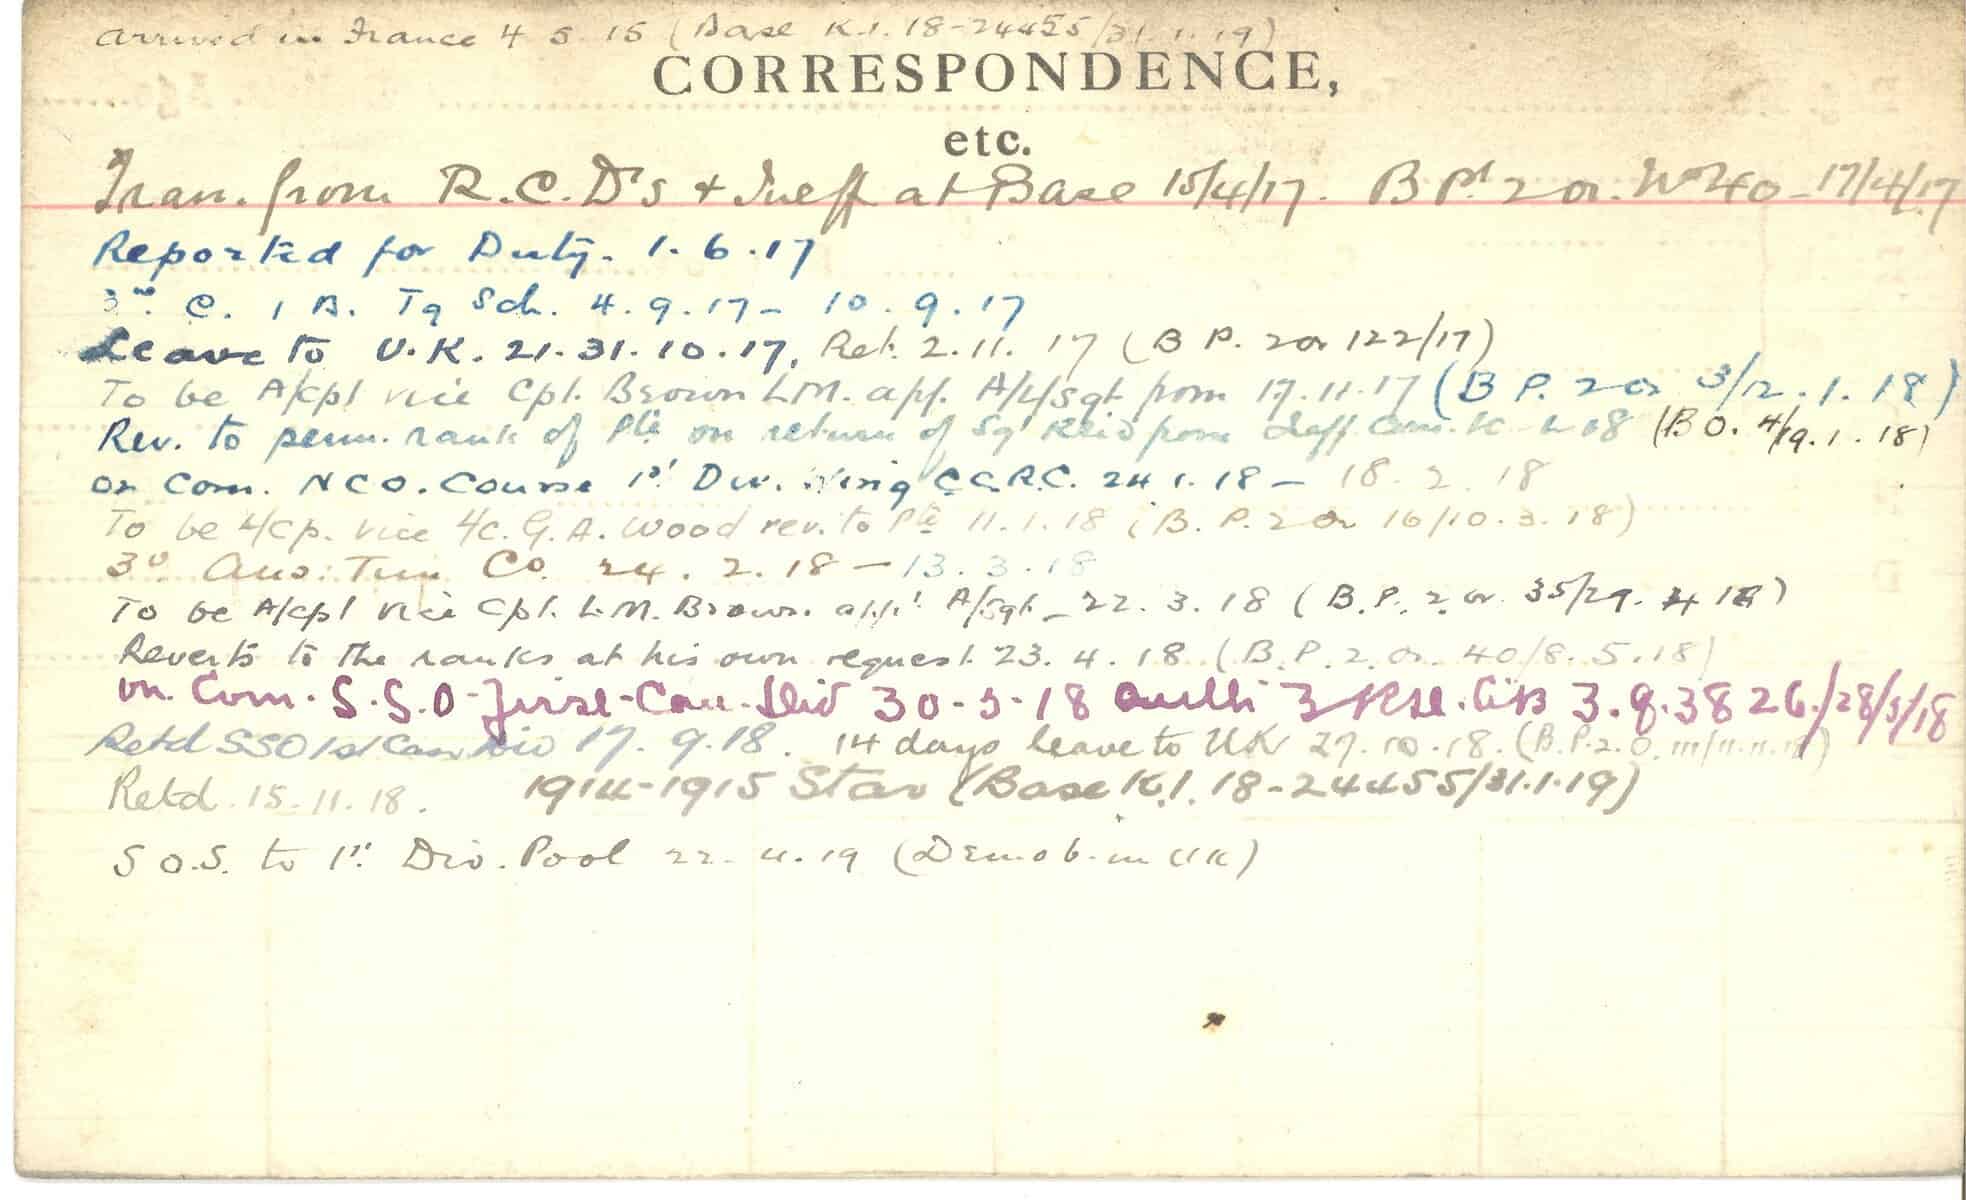 Arrived in France 4 5.15 (Base K.1.18-24455/31.1.19)
CORRESPONDENCE,
etc.
Tran. from R.C.D's + Ineff at Base 15/4/17. B Pt 2 or. No 40 - 17/4/17
Reported for Duty. 1.6.17
3rd C. I B. Tg Sch. 4.9.17 - 10.9.17
Leave to U.K. 21-31.10.17. Ret. 2.11.17 (B P. 2 or 122/17)
To be A/Cpl vice Cpl. Brown L.M. app. A/L/Sgt from 17.11.17 (B P. 2 or 3/12.1.18)
Rev. to perm. rank of Pte on return of Sgt Reid from (B O. 4/19.1.18)
on Com. NCO. Course 1st Div. Wing C.C.R.C. 24 1.18 - 18.2.18
To be L/Cp. vice L/c. G.A. Wood rev. to Pte 11.1.18 (B. P. 2 or 16/10.3.18)
3rd Aus: Tun Co. 24.2.18 - 13.3.18
To be A/Cpl vice Cpl. L.M. Brown. app. A/Sgt - 22.3.18 (B.P. 2 or 35/29.4 18)
Reverts to the ranks at his own request 23.4.18 (B.P. 2. or. 40/8.5.18)
on Com. S.S.O - First - Can. Div 30-3-18 auth 3 26/28/3/18
Retd SSO 1st Can Div 17.9.18. 14 days leave to UK 27.10.18. (B.P.2.O. 111/11.11.18)
Retd. 15.11.18. 1914-1915 Star (Base K.1.18-24455/31.1.19)
S O.S. to 1st Div. Pool 22.4.19 (Demob. in UK)